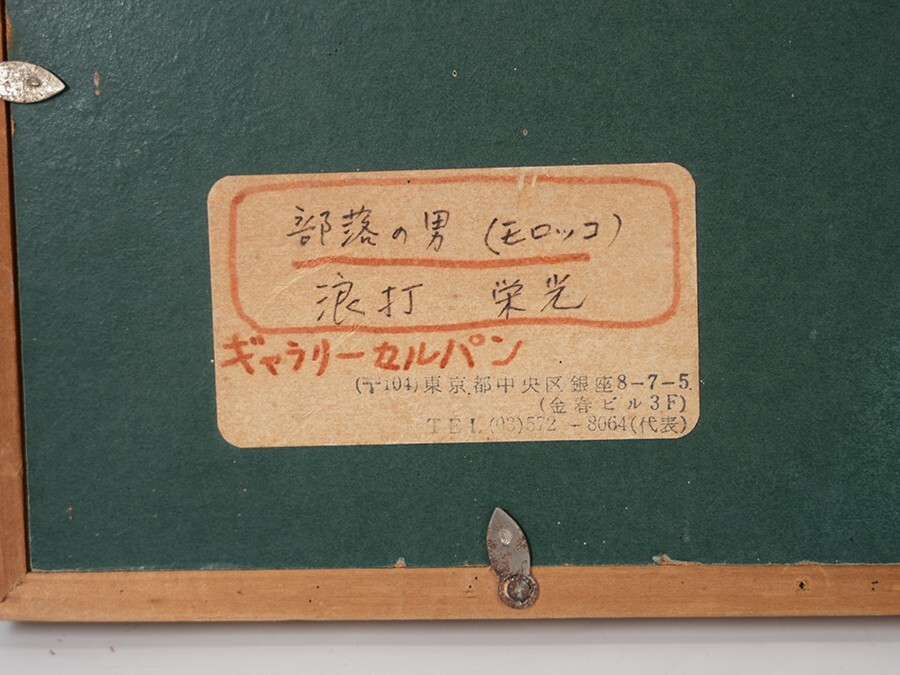 部落の男 (モロッコ)
浪打 栄光
ギャラリーセルパン
(〒104)東京都中央区銀座8-7-5
(金春ビル3F)
TEL(03)572-8064(代表)